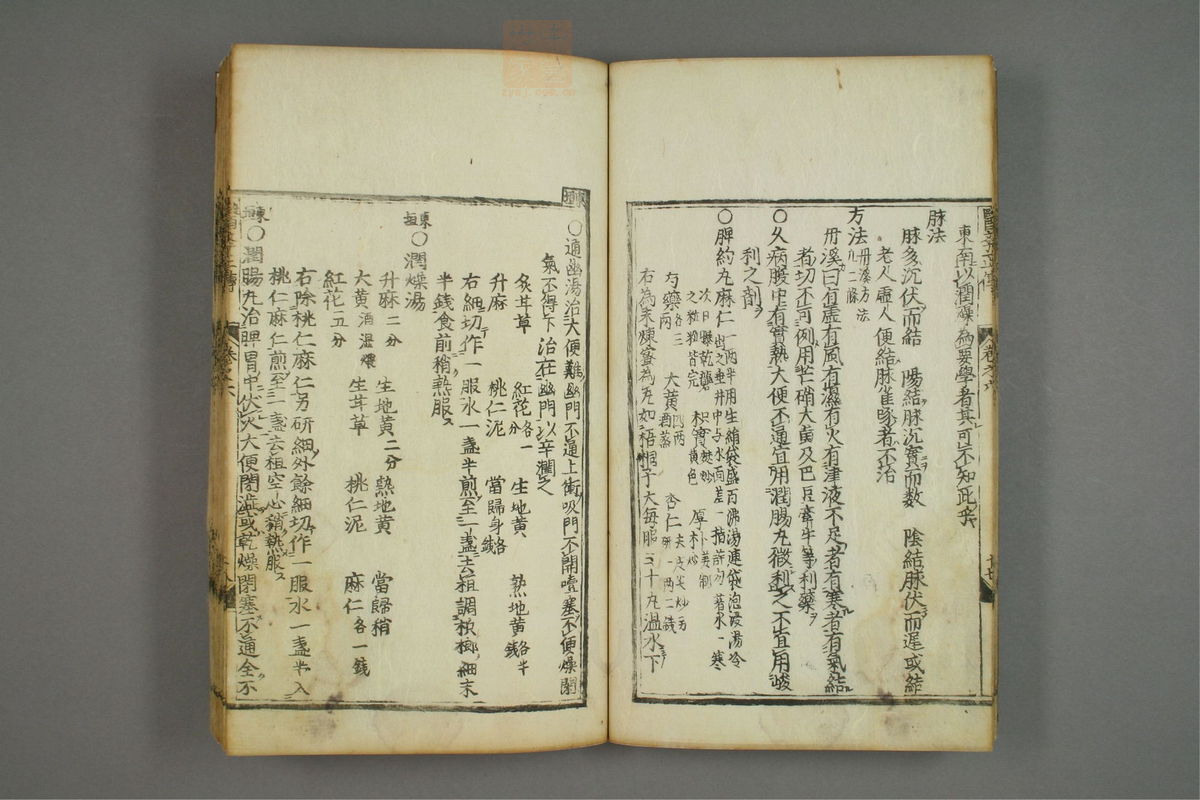 東南以潤燥爲要學者其可不知此乎
脉法
脉多沉伏而結　陽結脉沉實而數　陰結脉伏而遲或結
老人虛人便結脉雀啄者不治
方法丹溪方法凡二條
丹溪曰有虛有風有濕有火有津液不足者有寒者有氣結
者切不可例用芒硝大黄及巴豆牽牛等利藥
○久病腹中有實熱大便不通宜用潤腸丸微利之不宜用峻
利之劑
○脾約丸麻仁一兩半用生絹袋盛百沸湯連袋泡浸湯冷
出之垂井中与水面差一指許勿著水一寒
次日曝乾礱
之粒粒皆完　枳實麸炒黄色　厚朴姜制炒
芍藥各二兩　大黄四兩酒蒸　杏仁去皮尖炒另研一兩二錢
右爲末煉蜜爲丸如梧桐子大每服三十丸温水下
東垣
○通幽湯治大便難幽門不通上衝吸門不開噎塞不便燥閉
氣不得下治在幽門以辛潤之
炙甘草　紅花各一分　生地黄　熟地黄各半錢
升麻　桃仁泥　當歸身各錢
右細切作一服水一盞半煎至一盞去柤調檳榔細末
半錢食前稍熱服
東垣
○潤燥湯
升麻二分　生地黄二分　熟地黄　當歸稍
大黄酒湿煨　生甘草　桃仁泥　麻仁各一錢
紅花五分
右除桃仁麻仁另研細外餘細切作一服水一盞半入
桃仁麻仁煎至一盞去柤空心稍熱服
東垣
○潤腸丸治脾胃中伏火大便閉澁或乾燥閉塞不通全不